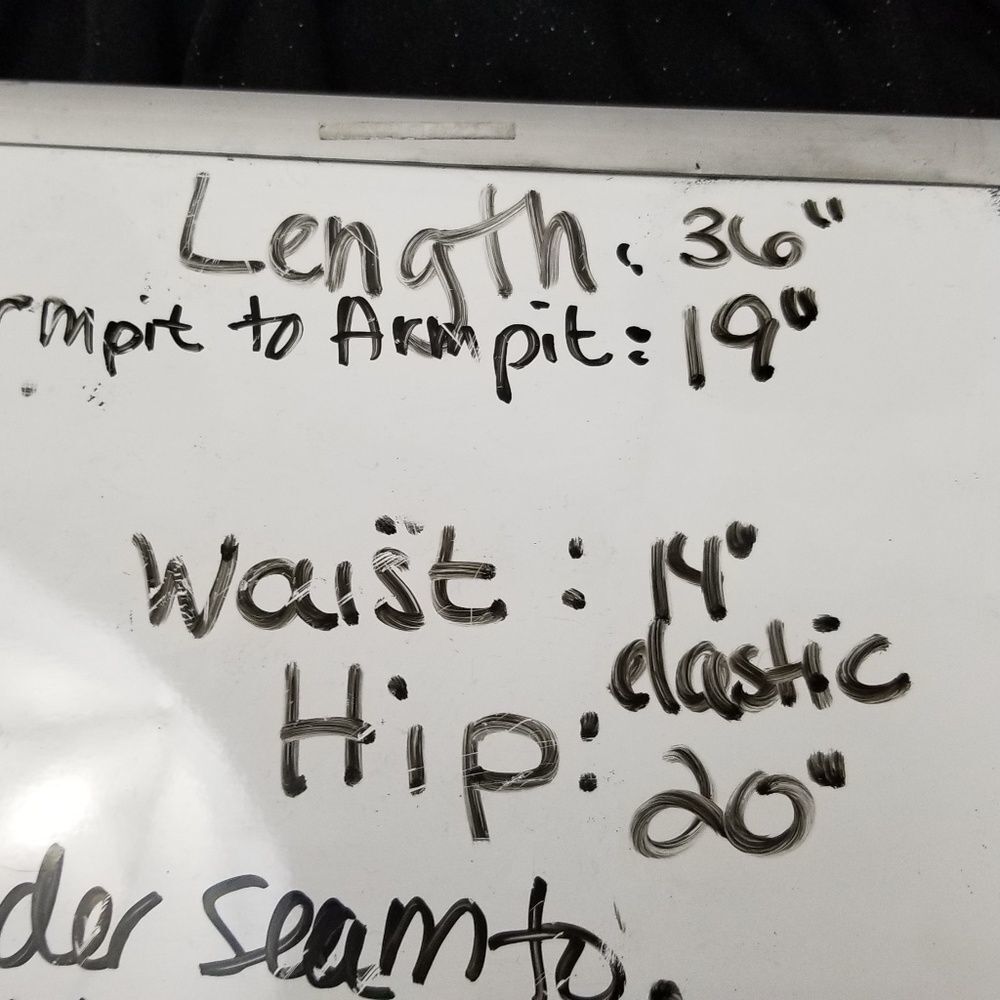 Length: 36"
rmpit to Armpit: 19"
Waist: 14"
elastic
Hip: 20"
der seam to